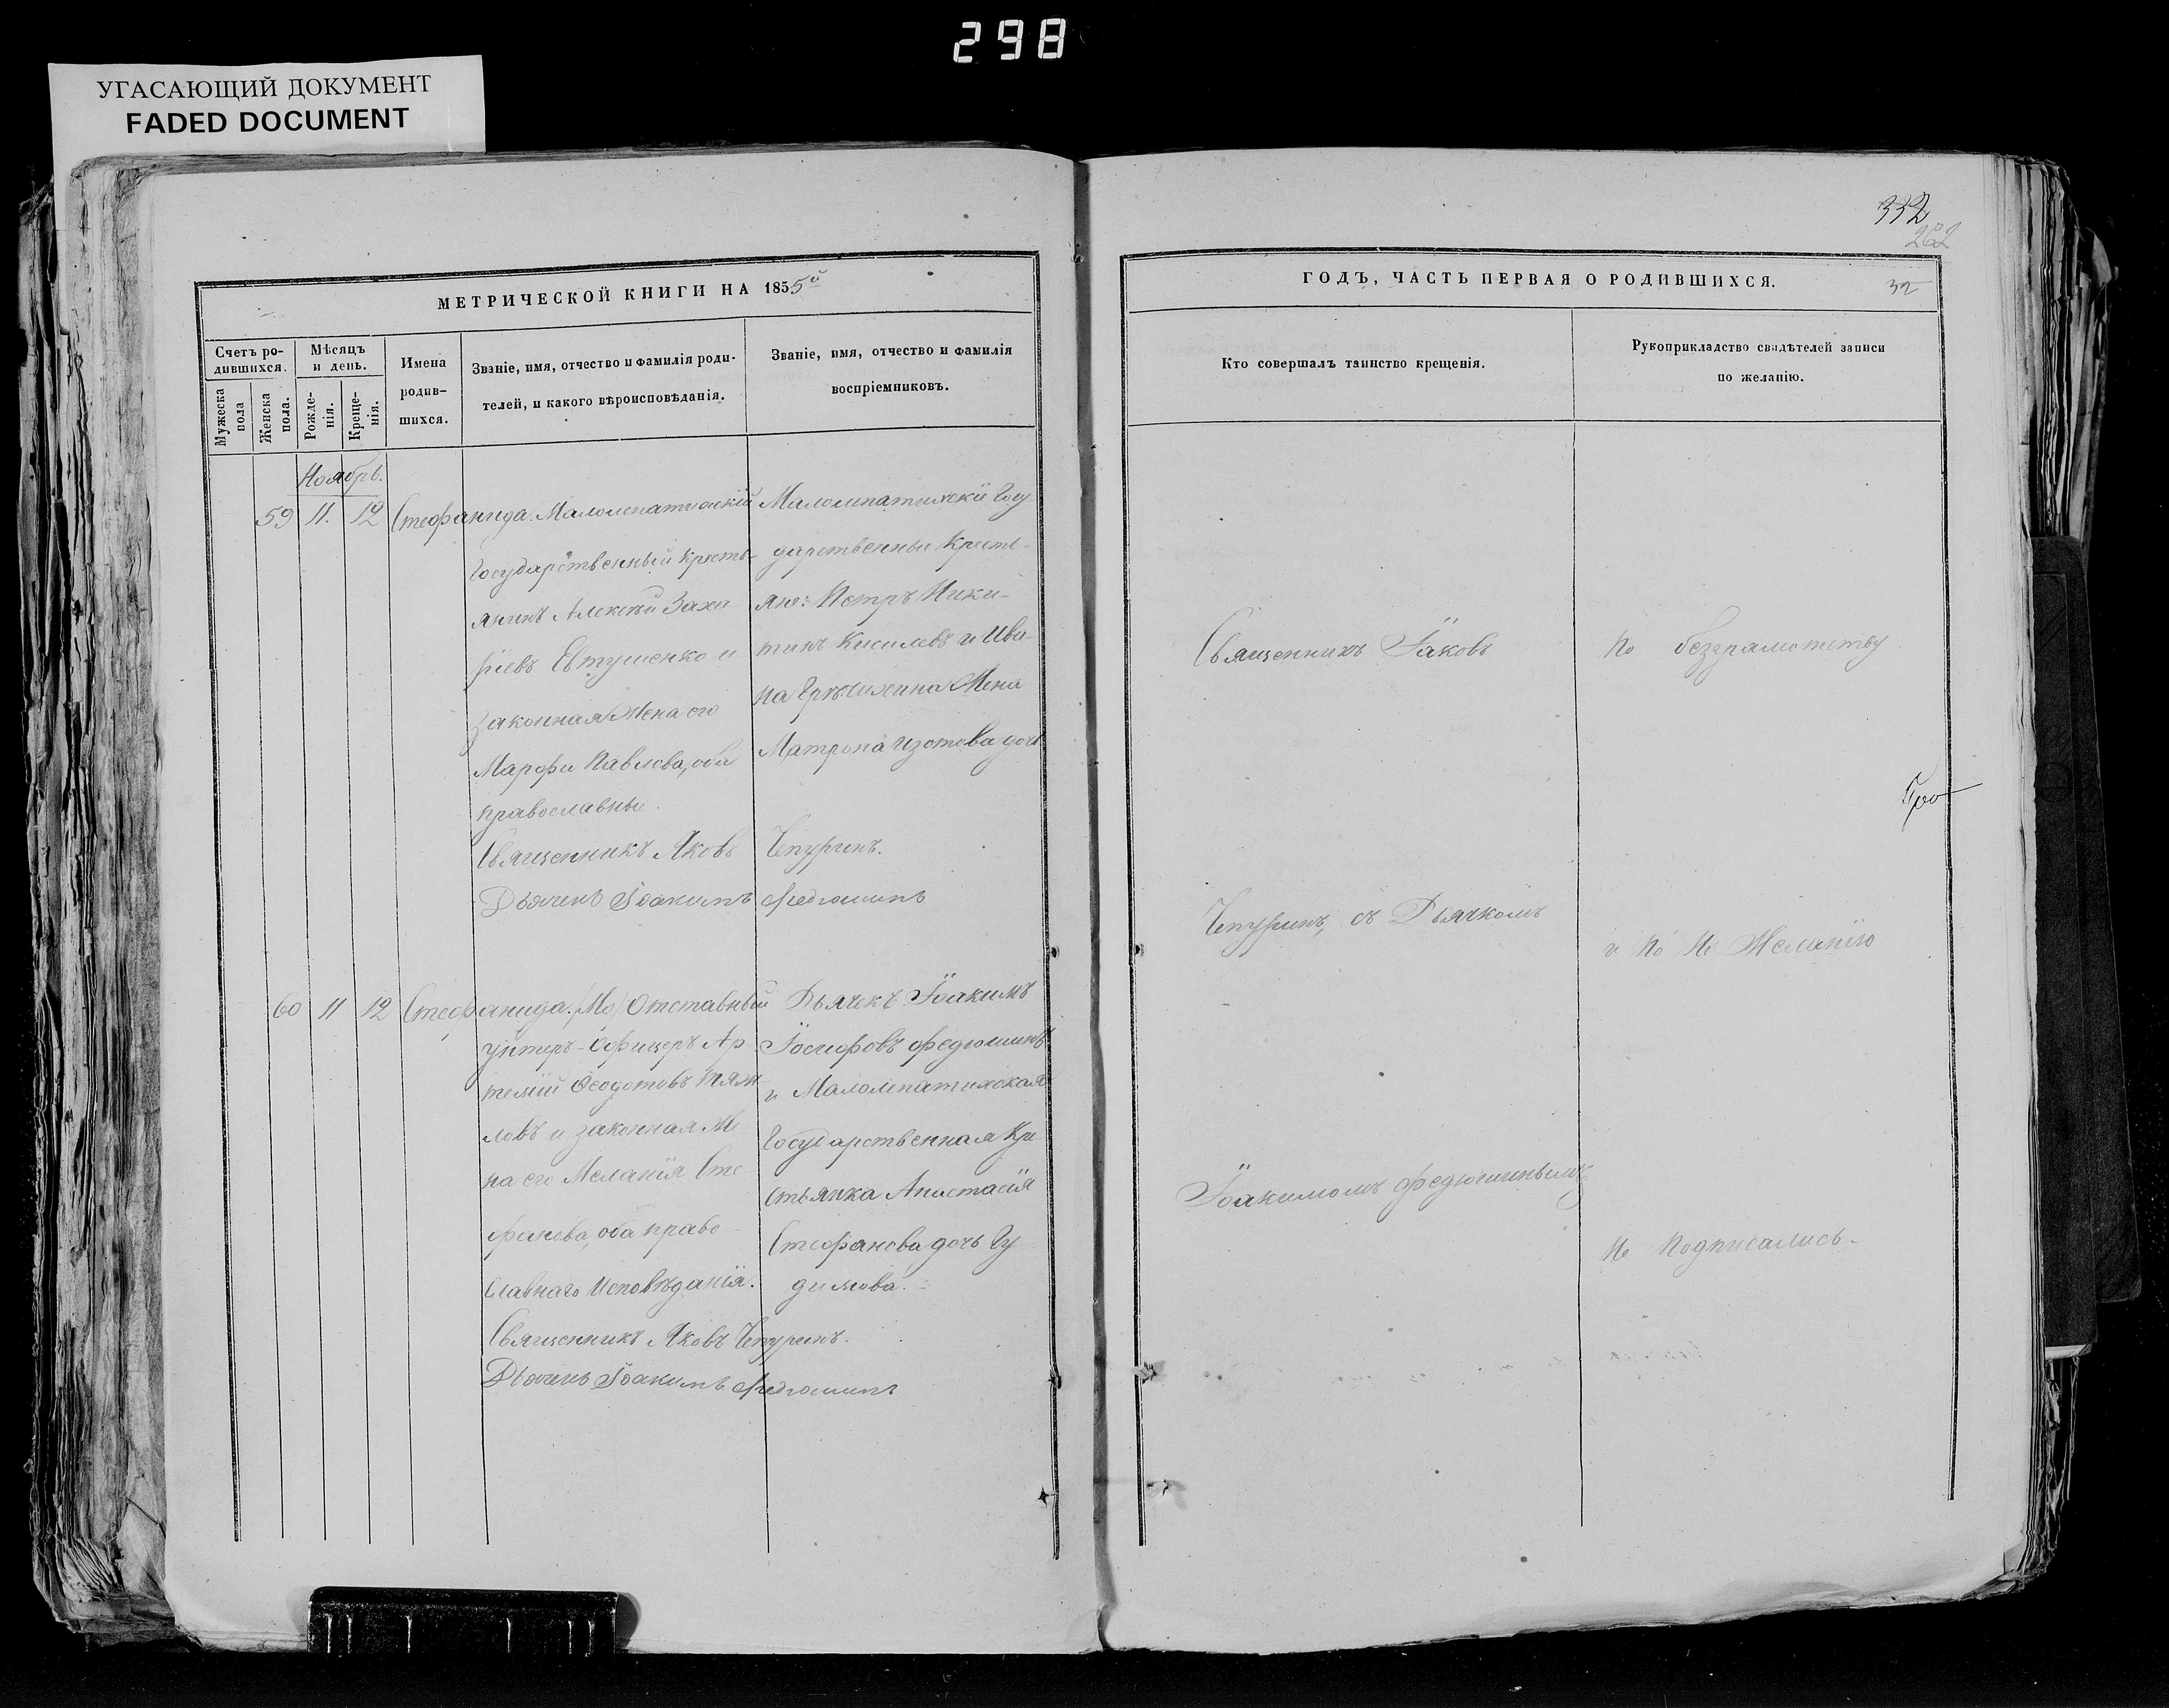 298
УГАСАЮЩИЙ ДОКУМЕНТ
FADED DOCUMENT
332
262
МЕТРИЧЕСКОЙ КНИГИ НА 1855й
Счетъ ро-
дившихся.
Мужеска
пола
Женска
пола.
Мѣсяцъ
и день.
Рожде-
нія.
Креще-
нія.
Имена
родив-
шихся.
Званіе, имя, отчество и фамилія роди-
телей, и какого вѣроисповѣданія.
Званіе, имя, отчество и фамилія
воспріемниковъ.
Ноябрь.
59 11. 12 Стефанида.
Малолепатихскій
Государственный Кресть-
янинъ Алексѣй Заха
ріевъ Евтушенко и
законная Жена его
Марфа Павлова, оба
православные.
Священникъ Яковъ Чепуринъ.
Дьячекъ Іоакимъ Федюшинъ
Малолепатихскіе Госу
дарственные Кресть-
яне: Петръ Ники-
тинъ Киселевъ и Ива-
на Жена
Матрона Изотова дочь
60 11 12 Стефанида.
Отставный
Унтеръ-Офицеръ Ар
темій Ѳеодотовъ
ловъ и законная Же
на его Меланія Сте
фанова, оба право-
славнаго Исповѣданія.
Священникъ Яковъ Чепуринъ.
Дьячекъ Іоакимъ Федюшинъ
Дьячекъ Іоакимъ
Іосифовъ Федюшинъ
и Малолепатихская
Государственная Кре
стьянка Анастасія
Стефанова дочь Гу
димова.
ГОДЪ, ЧАСТЬ ПЕРВАЯ О РОДИВШИХСЯ.
32
Кто совершалъ таинство крещенія.
Рукоприкладство свидѣтелей записи
по желанію.
Священникъ Іаковъ
Чепуринъ, съ Дьячкомъ
Іоакимомъ Федюшинымъ
По безграмотству
и по не Желанію
не подписались.